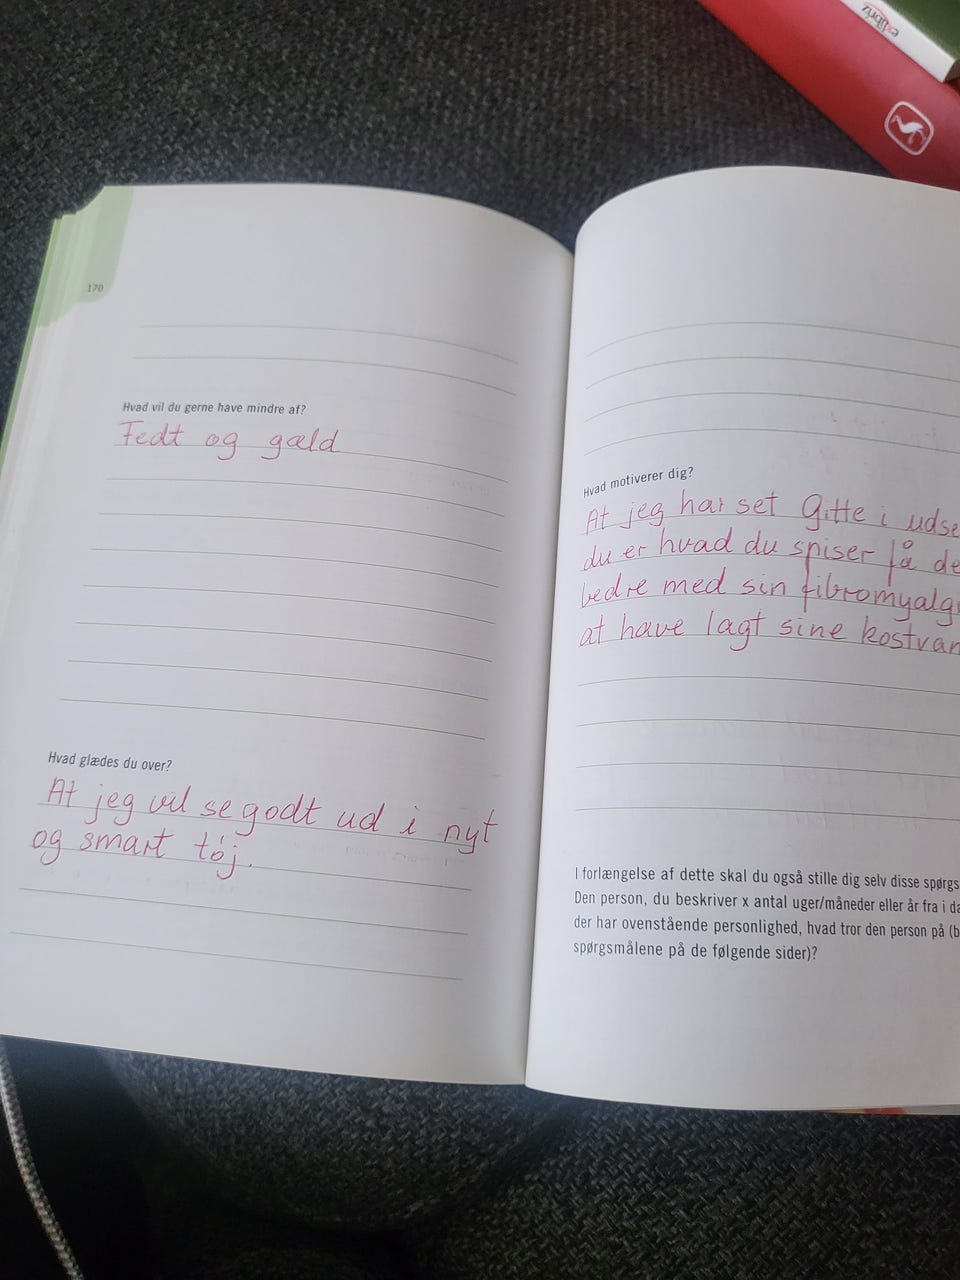 exlibriz
170
Hvad vil du gerne have mindre af?
Fedt og gæld
Hvad glædes du over?
At jeg vil se godt ud i nyt
og smart tøj.
Hvad motiverer dig?
At jeg har set Gitte i udse
du er hvad du spiser få de
bedre med sin fibromyalg
at have lagt sine kostvan
I forlængelse af dette skal du også stille dig selv disse spørgs
Den person, du beskriver x antal uger/måneder eller år fra i da
der har ovenstående personlighed, hvad tror den person på (b
spørgsmålene på de følgende sider)?